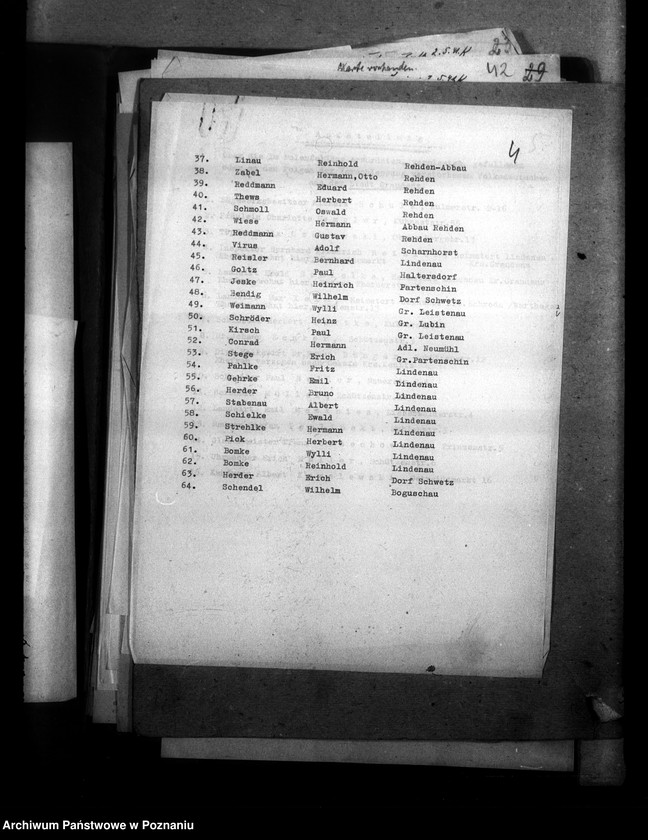 2.5.41K 23
Karte vorhanden. 42 29
4
37. Linau Reinhold Rehden-Abbau
38. Zabel Hermann,Otto Rehden
39. Reddmann Eduard Rehden
40. Thews Herbert Rehden
41. Schmoll Oswald Rehden
42. Wiese Hermann Abbau Rehden
43. Reddmann Gustav Rehden
44. Virus Adolf Scharnhorst
45. Reisler Bernhard Lindenau
46. Goltz Paul Haltersdorf
47. Jeske Heinrich Partenschin
48. Bendig Wilhelm Dorf Schwetz
49. Weimann Wylli Gr. Leistenau
50. Schröder Heinz Gr. Lubin
51. Kirsch Paul Gr. Leistenau
52. Conrad Hermann Adl. Neumühl
53. Stege Erich Gr.Partenschin
54. Pahlke Fritz Lindenau
55. Gehrke Emil Lindenau
56. Herder Bruno Lindenau
57. Stabenau Albert Lindenau
58. Schielke Ewald Lindenau
59. Strehlke Hermann Lindenau
60. Pick Herbert Lindenau
61. Bomke Wylli Lindenau
62. Bomke Reinhold Lindenau
63. Herder Erich Dorf Schwetz
64. Schendel Wilhelm Boguschau
Archiwum Państwowe w Poznaniu